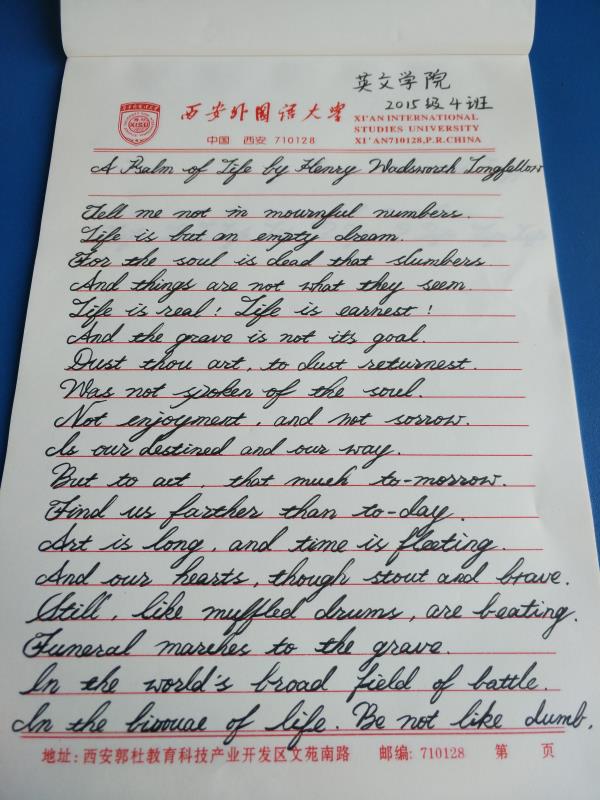 英文学院
2015级4班
西安外国语大学
中国 西安 710128
XI'AN INTERNATIONAL
STUDIES UNIVERSITY
XI'AN710128,P.R.CHINA
A Psalm of Life by Henry Wadsworth Longfellow
Tell me not in mournful numbers.
Life is but an empty dream.
For the soul is dead that slumbers
And things are not what they seem.
Life is real! Life is earnest!
And the grave is not its goal.
Dust thou art, to dust returnest.
Was not spoken of the soul.
Not enjoyment, and not sorrow.
Is our destined and our way.
But to act, that much to-morrow.
Find us farther than to-day.
Art is long, and time is fleeting.
And our hearts, though stout and brave.
Still, like muffled drums, are beating.
Funeral marches to the grave.
In the world's broad field of battle.
In the bivouac of life. Be not like dumb,
地址:西安郭杜教育科技产业开发区文苑南路 邮编:710128 第 页